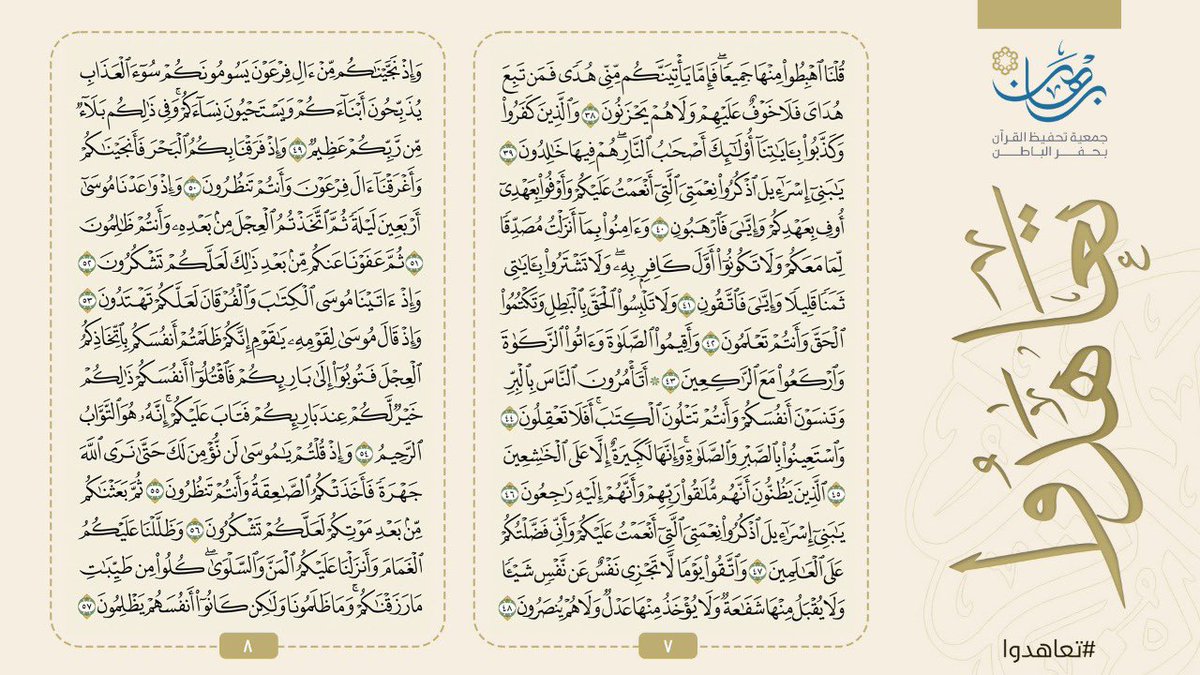 برهان
جمعية تحفيظ القرآن
بحفر الباطن
تعاهدوا
#تعاهدوا
قُلۡنَا ٱهۡبِطُواْ مِنۡهَا جَمِيعٗاۖ فَإِمَّا يَأۡتِيَنَّكُم مِّنِّي هُدٗى فَمَن تَبِعَ
هُدَايَ فَلَا خَوۡفٌ عَلَيۡهِمۡ وَلَا هُمۡ يَحۡزَنُونَ ٣٨ وَٱلَّذِينَ كَفَرُواْ
وَكَذَّبُواْ بِـَٔايَٰتِنَآ أُوْلَٰٓئِكَ أَصۡحَٰبُ ٱلنَّارِۖ هُمۡ فِيهَا خَٰلِدُونَ ٣٩
يَٰبَنِيٓ إِسۡرَٰٓءِيلَ ٱذۡكُرُواْ نِعۡمَتِيَ ٱلَّتِيٓ أَنۡعَمۡتُ عَلَيۡكُمۡ وَأَوۡفُواْ بِعَهۡدِيٓ
أُوفِ بِعَهۡدِكُمۡ وَإِيَّٰيَ فَٱرۡهَبُونِ ٤٠ وَءَامِنُواْ بِمَآ أَنزَلۡتُ مُصَدِّقٗا
لِّمَا مَعَكُمۡ وَلَا تَكُونُوٓاْ أَوَّلَ كَافِرِۭ بِهِۦۖ وَلَا تَشۡتَرُواْ بِـَٔايَٰتِي
ثَمَنٗا قَلِيلٗا وَإِيَّٰيَ فَٱتَّقُونِ ٤١ وَلَا تَلۡبِسُواْ ٱلۡحَقَّ بِٱلۡبَٰطِلِ وَتَكۡتُمُواْ
ٱلۡحَقَّ وَأَنتُمۡ تَعۡلَمُونَ ٤٢ وَأَقِيمُواْ ٱلصَّلَوٰةَ وَءَاتُواْ ٱلزَّكَوٰةَ
وَٱرۡكَعُواْ مَعَ ٱلرَّٰكِعِينَ ٤٣ ۞ أَتَأۡمُرُونَ ٱلنَّاسَ بِٱلۡبِرِّ
وَتَنسَوۡنَ أَنفُسَكُمۡ وَأَنتُمۡ تَتۡلُونَ ٱلۡكِتَٰبَۚ أَفَلَا تَعۡقِلُونَ ٤٤
وَٱسۡتَعِينُواْ بِٱلصَّبۡرِ وَٱلصَّلَوٰةِۚ وَإِنَّهَا لَكَبِيرَةٌ إِلَّا عَلَى ٱلۡخَٰشِعِينَ
٤٥ ٱلَّذِينَ يَظُنُّونَ أَنَّهُم مُّلَٰقُواْ رَبِّهِمۡ وَأَنَّهُمۡ إِلَيۡهِ رَٰجِعُونَ ٤٦
يَٰبَنِيٓ إِسۡرَٰٓءِيلَ ٱذۡكُرُواْ نِعۡمَتِيَ ٱلَّتِيٓ أَنۡعَمۡتُ عَلَيۡكُمۡ وَأَنِّي فَضَّلۡتُكُمۡ
عَلَى ٱلۡعَٰلَمِينَ ٤٧ وَٱتَّقُواْ يَوۡمٗا لَّا تَجۡزِي نَفۡسٌ عَن نَّفۡسٖ شَيۡـٔٗا
وَلَا يُقۡبَلُ مِنۡهَا شَفَٰعَةٞ وَلَا يُؤۡخَذُ مِنۡهَا عَدۡلٞ وَلَا هُمۡ يُنصَرُونَ ٤٨
٧
وَإِذۡ نَجَّيۡنَٰكُم مِّنۡ ءَالِ فِرۡعَوۡنَ يَسُومُونَكُمۡ سُوٓءَ ٱلۡعَذَابِ
يُذَبِّحُونَ أَبۡنَآءَكُمۡ وَيَسۡتَحۡيُونَ نِسَآءَكُمۡۚ وَفِي ذَٰلِكُم بَلَآءٞ
مِّن رَّبِّكُمۡ عَظِيمٞ ٤٩ وَإِذۡ فَرَقۡنَا بِكُمُ ٱلۡبَحۡرَ فَأَنجَيۡنَٰكُمۡ
وَأَغۡرَقۡنَآ ءَالَ فِرۡعَوۡنَ وَأَنتُمۡ تَنظُرُونَ ٥٠ وَإِذۡ وَٰعَدۡنَا مُوسَىٰٓ
أَرۡبَعِينَ لَيۡلَةٗ ثُمَّ ٱتَّخَذۡتُمُ ٱلۡعِجۡلَ مِنۢ بَعۡدِهِۦ وَأَنتُمۡ ظَٰلِمُونَ
٥١ ثُمَّ عَفَوۡنَا عَنكُم مِّنۢ بَعۡدِ ذَٰلِكَ لَعَلَّكُمۡ تَشۡكُرُونَ ٥٢
وَإِذۡ ءَاتَيۡنَا مُوسَى ٱلۡكِتَٰبَ وَٱلۡفُرۡقَانَ لَعَلَّكُمۡ تَهۡتَدُونَ ٥٣
وَإِذۡ قَالَ مُوسَىٰ لِقَوۡمِهِۦ يَٰقَوۡمِ إِنَّكُمۡ ظَلَمۡتُمۡ أَنفُسَكُم بِٱتِّخَاذِكُمُ
ٱلۡعِجۡلَ فَتُوبُوٓاْ إِلَىٰ بَارِئِكُمۡ فَٱقۡتُلُوٓاْ أَنفُسَكُمۡ ذَٰلِكُمۡ
خَيۡرٞ لَّكُمۡ عِندَ بَارِئِكُمۡ فَتَابَ عَلَيۡكُمۡۚ إِنَّهُۥ هُوَ ٱلتَّوَّابُ
ٱلرَّحِيمُ ٥٤ وَإِذۡ قُلۡتُمۡ يَٰمُوسَىٰ لَن نُّؤۡمِنَ لَكَ حَتَّىٰ نَرَى ٱللَّهَ
جَهۡرَةٗ فَأَخَذَتۡكُمُ ٱلصَّٰعِقَةُ وَأَنتُمۡ تَنظُرُونَ ٥٥ ثُمَّ بَعَثۡنَٰكُم
مِّنۢ بَعۡدِ مَوۡتِكُمۡ لَعَلَّكُمۡ تَشۡكُرُونَ ٥٦ وَظَلَّلۡنَا عَلَيۡكُمُ
ٱلۡغَمَامَ وَأَنزَلۡنَا عَلَيۡكُمُ ٱلۡمَنَّ وَٱلسَّلۡوَىٰۖ كُلُواْ مِن طَيِّبَٰتِ
مَا رَزَقۡنَٰكُمۡۚ وَمَا ظَلَمُونَا وَلَٰكِن كَانُوٓاْ أَنفُسَهُمۡ يَظۡلِمُونَ ٥٧
٨